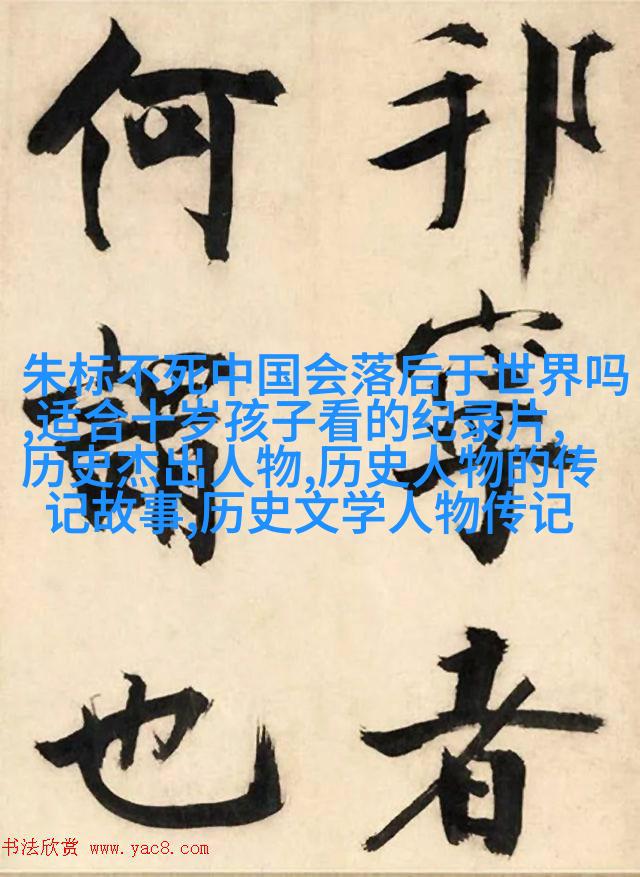 邦寧者
何也
朱标不死中国会落后于世界吗
,适合十岁孩子看的纪录片,
历史杰出人物,历史人物的传
记故事,历史文学人物传记
书法欣赏 www.yac8.com